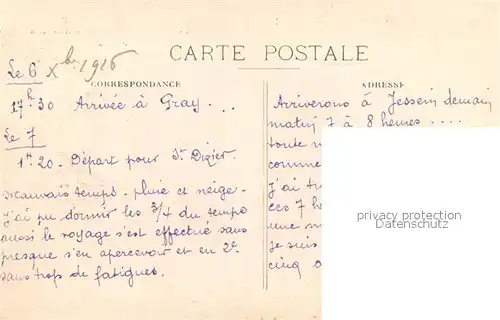 Le 6 Xbre 1916
CARTE POSTALE
CORRESPONDANCE
ADRESSE
17h30 Arrivée à Gray...
Le 7
1h20 - Départ pour St Dizier.
Mauvais temps - pluie et neige -
J'ai pu dormir les 3/4 du temps
aussi le voyage s'est effectué sans
presque s'en apercevoir et en 2e
sans trop de fatigues.
Arriverons à Jessein demain
matin 7 à 8 heures ....
toute
comme
J'ai
ces 7
une
je suis
cinq
privacy protection
Datenschutz